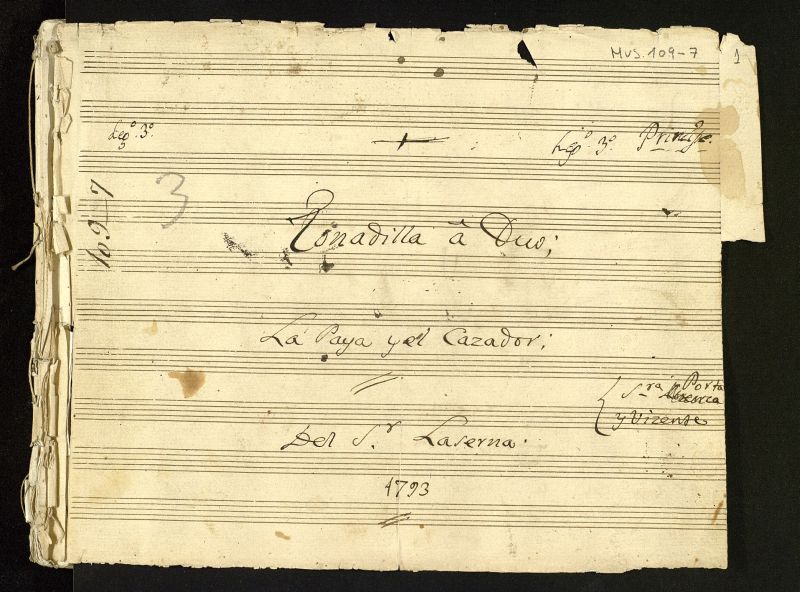 MUS. 109-7
1
Leg.º 3.º
Leg.º 3.º Princ.pe
109-7
3
Tonadilla â Duo;
La Paya y el Cazador;
Sra Porta
y Vizente
Del S.r Laserna.
1793